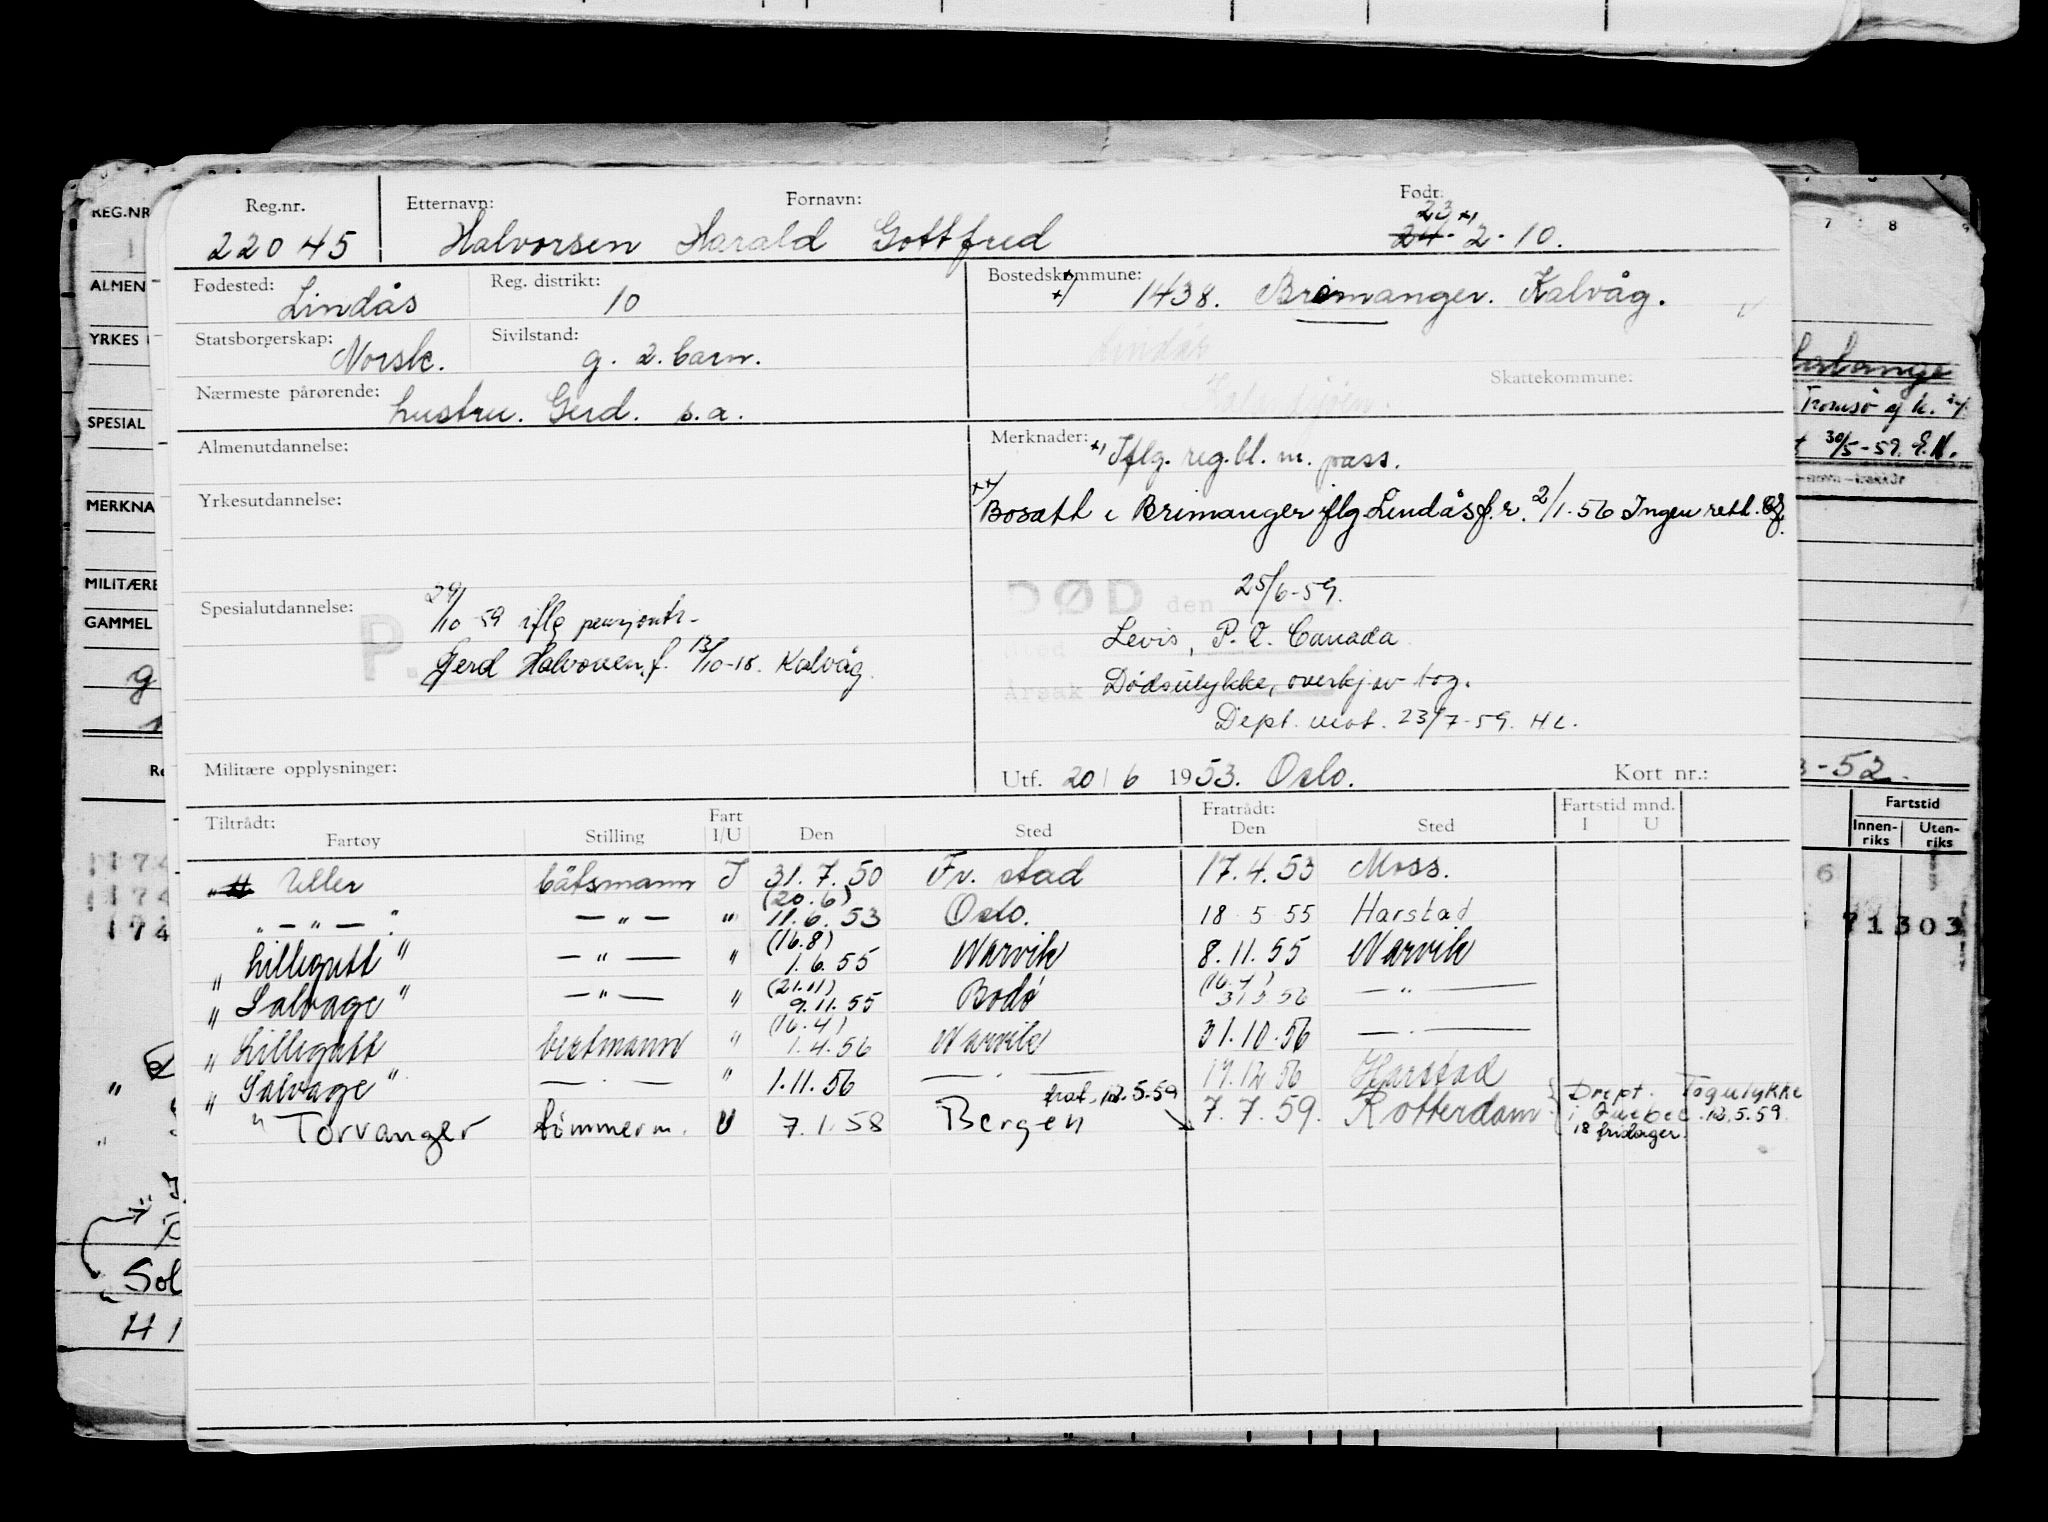 Reg.nr. Etternavn: Fornavn: Født:
23 x)
22045 Halvorsen Harald Gottfred 24. 2. 10.
Fødested: Lindås Reg. distrikt: 10 Bostedskommune: x) 1438. Bremanger. Kalvåg.
Statsborgerskap: Norsk. Sivilstand: g. 2. barn. Lindås
Nærmeste pårørende: hustru. Gerd. s.a. Skattekommune:
Almenutdannelse: Merknader: x) Iflg. reg.bl. m. pass.
Yrkesutdannelse: xx) Bosatt i Brimanger iflg Lindås f.r. 2/1-56 Ingen rett.
Spesialutdannelse: P. 29/10-59 iflg pensjontr.
Gerd Halvorsen, f. 13/10-18. Kalvåg.
DØD den 25/6-59.
Sted Levis, P.Q. Canada
Årsak Dødsulykke, overkj av tog.
Dept. mot. 23/7-59. HL.
Militære opplysninger: Utf. 20/6 1953. Oslo. Kort nr.:
Tiltrådt: Fart Fratrådt: Fartstid mnd.
Fartøy Stilling I/U Den Sted Den Sted I U
" Uller båtsmann I 31.7.50 Fv. stad 17.4.53 Moss.
" — " — " — " — " (20.6) 11.6.53 Oslo. 18.5.55 Harstad
" Lillegutt " — " — " (16.8) 1.6.55 Narvik 8.11.55 Narvik
" Salvage " — " — " (21.11) 9.11.55 Bodö (16.4) 31.3.56 — " —
" Lillegutt bestmann " (16.4) 1.4.56 Narvik 31.10.56 — . —
" Salvage " — . — " 1.11.56 — . — 19.12.56 Harstad
" Torvanger tömmerm. U 7.1.58 Bergen frat. 12.5.59 7.7.59. Rotterdam
Drept. Togulykke
i Quebec 12.5.59.
18 fridager.
REG.NR
ALMEN
YRKES
SPESIAL
MERKNA
MILITÆRE
GAMMEL
g
Sol
H 1
174
174
174
7 8
Tromsø
30/5-59.
3-52.
Fartstid
Innen-riks Uten-riks
6
71303